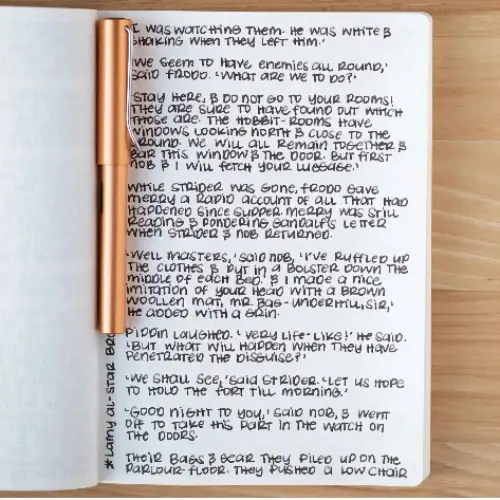 I was watching them. He was white &
shaking when they left him.'
'We seem to have enemies all round,'
said Frodo. 'What are we to do?'
'Stay here, & do not go to your rooms!
They are sure to have found out which
those are. The hobbit-rooms have
windows looking north & close to the
ground. We will all remain together &
bar this window & the door. But first
Nob & I will fetch your luggage.'
While Strider was gone, Frodo gave
Merry a rapid account of all that had
happened since supper. Merry was still
reading & pondering Gandalf's letter
when Strider & Nob returned.
'Well Masters,' said Nob, 'I've ruffled up
the clothes & put in a bolster down the
middle of each bed. & I made a nice
imitation of your head with a brown
woollen mat, Mr. Bag-Underhill, sir,'
he added with a grin.
Pippin laughed. 'Very life-like!' he said.
'But what will happen when they have
penetrated the disguise?'
'We shall see,' said Strider. 'Let us hope
to hold the fort till morning.'
'Good night to you,' said Nob, & went
off to take his part in the watch on
the doors.
Their bags & gear they piled up on the
parlour-floor. They pushed a low chair
*Lamy Al-Star